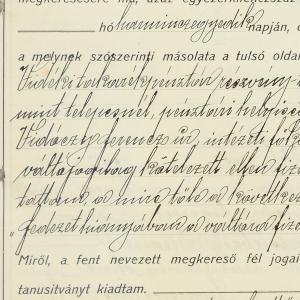 megkeresésére ma, azaz egyezerkilencszáz
hó harminczegyedik napján,
a melynek szószerinti másolata a tulsó olda
Vidéki takarékpénztár részvény
mint telepesnél, pénztári helyiség
ferencz úr, intézeti
váltójogilag kötelezett ellen fize
tattam, a mire tőle a követke
"fedezet hiányában a váltóra fize
Miről, a fent nevezett megkereső fél jogai
tanusítványt kiadtam.